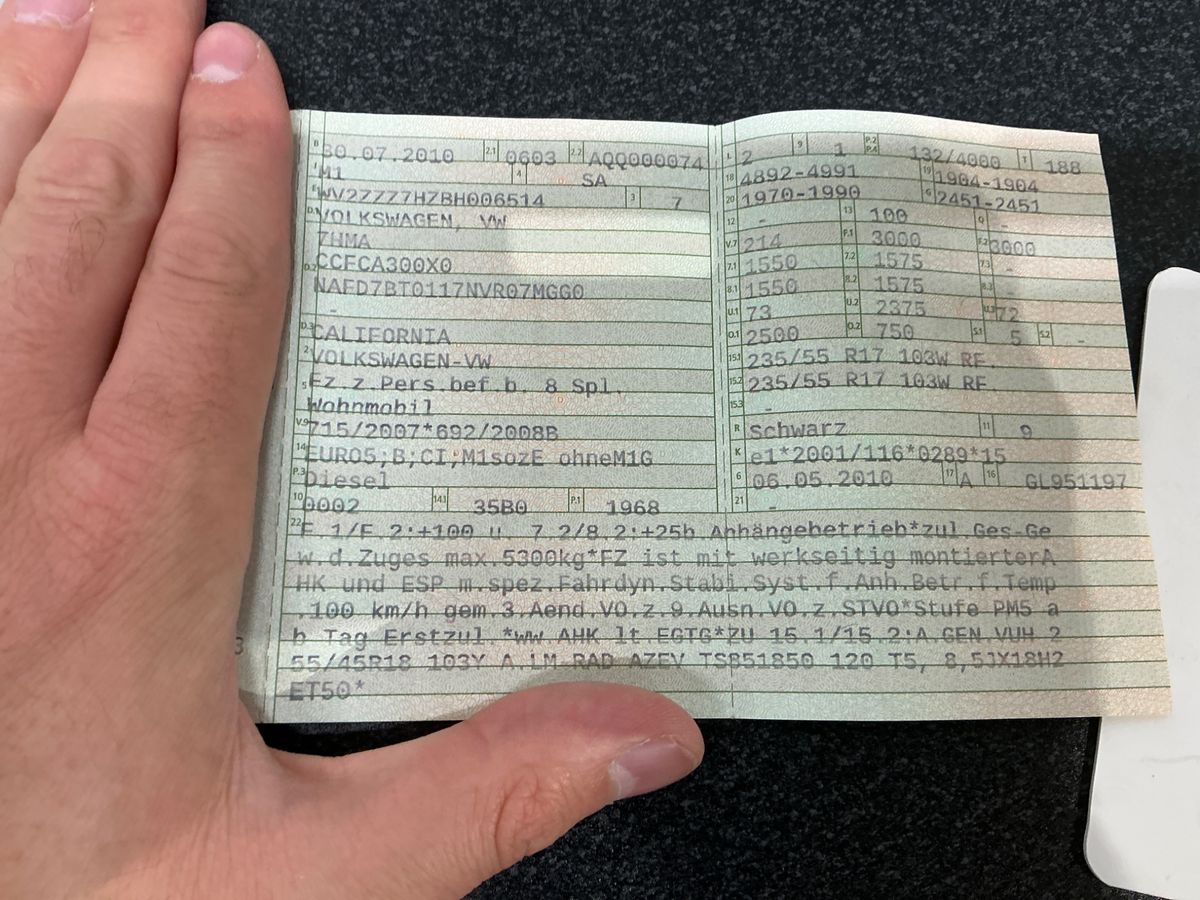 B 30.07.2010 2.1 0603 2.2 AQQ000074
J M1 4 SA
E WV2ZZZ7HZBH006514 3 7
D.1 VOLKSWAGEN, VW
7HMA
D.2 CCFCA300X0
NAFD7BT0117NVR07MGG0
-
D.3 CALIFORNIA
2 VOLKSWAGEN-VW
5 Fz.z.Pers.bef.b. 8 Spl.
Wohnmobil
V.9 715/2007*692/2008B
14 EURO5;B;CI;M1sozE ohneM1G
P.3 Diesel
10 0002 14.1 35B0 P.1 1968
L 2 9 1 P.2 P.4 132/4000 T 188
18 4892-4991 19 1904-1904
20 1970-1990 G 2451-2451
12 - 13 100 Q -
V.7 214 F.1 3000 F.2 3000
7.1 1550 7.2 1575 7.3 -
8.1 1550 8.2 1575 8.3 -
U.1 73 U.2 2375 U.3 72
O.1 2500 O.2 750 S.1 5 S.2 -
15.1 235/55 R17 103W RF.
15.2 235/55 R17 103W RF
15.3 -
R schwarz 11 9
K e1*2001/116*0289*15
6 06.05.2010 17 A 16 GL951197
21 -
22 F.1/F.2:+100 u. 7.2/8.2:+25b.Anhängebetrieb*zul.Ges-Ge
w.d.Zuges max.5300kg*FZ ist mit werkseitig montierterA
HK und ESP m.spez.Fahrdyn.Stabi.Syst.f.Anh.Betr.f.Temp
.100 km/h gem.3.Aend.VO.z.9.Ausn.VO.z.STVO*Stufe PM5 a
b Tag Erstzul.*ww.AHK lt.EGTG*ZU 15.1/15.2:A.GEN.VUH 2
55/45R18 103Y A.LM-RAD AZEV TSB51850 120 T5, 8,5JX18H2
ET50*
3